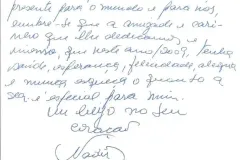 presente para o mundo e para nós,
lembre-se que a amizade e cari-
nho que lhe dedicamos, e
que neste ano/2009, tenha
saúde, esperança, felicidade, alegria
e nunca esqueça o quanto a
sra. é especial para mim.
Um beijo no seu
coração
Nadir